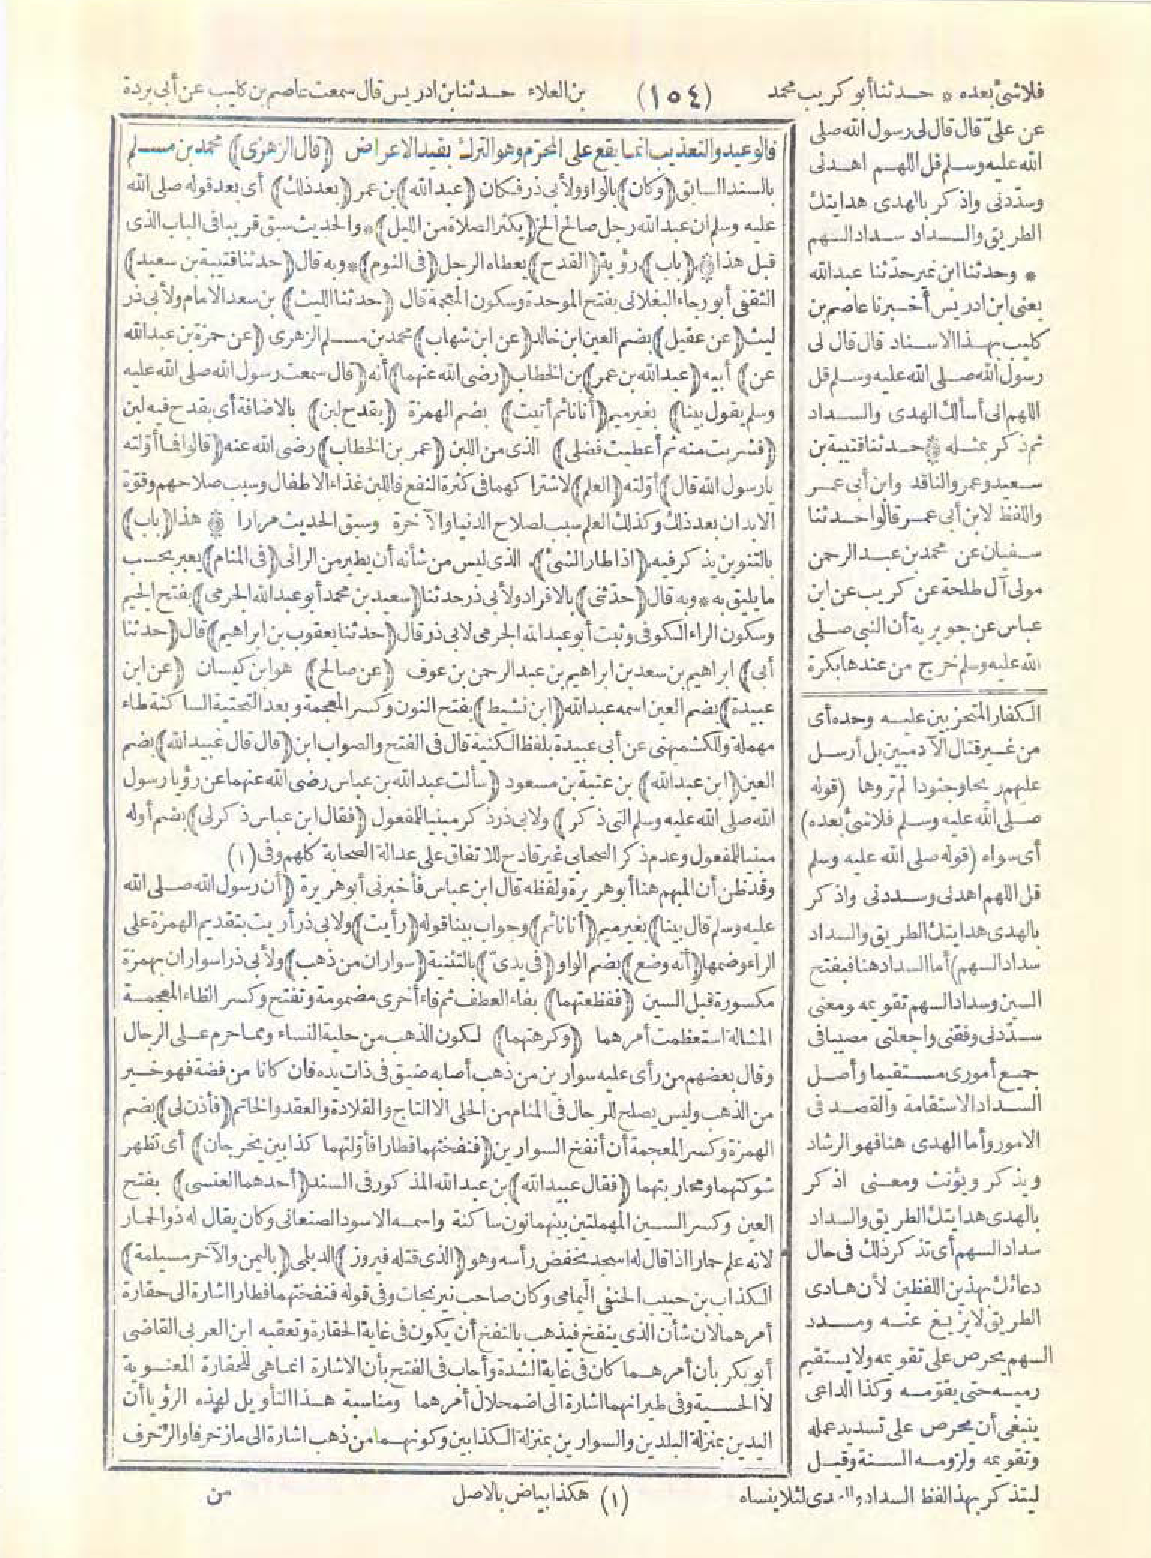 فلاشئ بعده * حدثنا أبو كريب محمد (١٥٤) بن العلاء حدثنا ابن ادريس قال سمعت عاصم بن كليب عن أبى بردة
عن علىّ قال قال لى رسول الله صلى
الله عليه وسلم قل اللهم اهدنى
وسدّدنى واذكر بالهدى هدايتك
الطريق والسداد سداد السهم
* وحدثنا ابن نمير حدّثنا عبدالله
يعنى ابن ادريس أخبرنا عاصم بن
كليب بهذا الاسناد قال قال لى
رسول الله صلى الله عليه وسلم قل
اللهم انى أسألك الهدى والسداد
ثم ذكر بمثله * حدثنا قتيبة بن
سعيد وعمرو الناقد وابن أبى عمر
واللفظ لابن أبى عمر قالوا حدثنا
سفيان عن محمد بن عبد الرحمن
مولى آل طلحة عن كريب عن ابن
عباس عن جويرية أن النبى صلى
الله عليه وسلم خرج من عندها بكرة
الكفار المتحزبين عليه وحده أى
من غير قتال الآدميين بل أرسل
عليهم ريحا وجنودا لم تروها (قوله
صلى الله عليه وسلم فلاشئ بعده)
أى سواه (قوله صلى الله عليه وسلم
قل اللهم اهدنى وسددنى واذكر
بالهدى هدايتك الطريق والسداد
سداد السهم) أما السداد هنا فبفتح
السين وسداد السهم تقويمه ومعنى
سدّدنى وفقنى واجعلنى مصيبا فى
جميع أمورى مستقيما وأصل
السداد الاستقامة والقصد فى
الامور وأما الهدى هنا فهو الرشاد
ويذكر ويؤنث ومعنى اذكر
بالهدى هدايتك الطريق والسداد
سداد السهم أى تذكر ذلك فى حال
دعائك بهذين اللفظين لأن هادى
الطريق لايزيغ عنه ومسدد
السهم يحرص على تقويمه ولا يستقيم
رميه حتى يقوّمه وكذا الداعى
ينبغى أن يحرص على تسديد عمله
وتقويمه ولزومه السنة وقيل
ليتذكر بهذا لفظ السداد والهدى لئلا ينساه
فالوعيد والتعذيب انما يقع على المحرّم وهو الترك بقيد الاعراض (قال الزهرى) محمد بن مسلم
بالسند السابق (وكان) بالواو ولأبى ذر فكان (عبدالله) بن عمر (بعد ذلك) أى بعد قوله صلى الله
عليه وسلم ان عبد الله رجل صالح الخ (يكثر الصلاة من الليل) * والحديث سبق قريبا فى الباب الذى
قبل هذا * (باب) رؤية (القدح) يعطاه الرجل (فى النوم) * وبه قال (حدثنا قتيبة بن سعيد)
الثقفى أبو رجاء البغلانى بفتح الموحدة وسكون المعجمة قال (حدثنا الليث) بن سعد الامام ولأبى ذر
ليث (عن عقيل) بضم العين ابن خالد (عن ابن شهاب) محمد بن مسلم الزهرى (عن حمزة بن عبدالله
عن) أبيه (عبدالله بن عمر) بن الخطاب (رضى الله عنهما) أنه (قال سمعت رسول الله صلى الله عليه
وسلم يقول بينا) بغير ميم (أنا نائم أتيت) بضم الهمزة (بقدح لبن) بالاضافة أى بقدح فيه لبن
(فشربت منه ثم أعطيت فضلى) الذى من اللبن (عمر بن الخطاب) رضى الله عنه (قالوا فما أوّلته
يا رسول الله قال) أوّلته (العلم) لاشتراكهما فى كثرة النفع فاللبن غذاء الاطفال وسبب صلاحهم وقوّة
الابدان بعد ذلك وكذلك العلم سبب لصلاح الدنيا والآخرة وسبق الحديث مرارا * هذا (باب)
بالتنوين يذكر فيه (اذا طار الشئ) الذى ليس من شأنه أن يطير من الرائى (فى المنام) يعبر بحسب
ما يليق به * وبه قال (حدّثنى) بالافراد ولأبى ذر حدثنا (سعيد بن محمد أبو عبد الله الجرمى) بفتح الجيم
وسكون الراء الكوفى وثبت أبو عبد الله الجرمى لابى ذر قال (حدثنا يعقوب بن ابراهيم) قال (حدثنا
أبى) ابراهيم بن سعد بن ابراهيم بن عبد الرحمن بن عوف (عن صالح) هو ابن كيسان (عن ابن
عبيدة) بضم العين اسمه عبدالله (ابن نشيط) بفتح النون وكسر المعجمة وبعد التحتية الساكنة طاء
مهملة وللكشميهنى عن أبى عبيدة بلفظ الكنية قال فى الفتح والصواب ابن (قال قال عبيد الله) بضم
العين (ابن عبدالله) بن عتبة بن مسعود (سألت عبدالله بن عباس رضى الله عنهما عن رؤيا رسول
الله صلى الله عليه وسلم التى ذكر) ولابى ذر ذكر مبنيا للمفعول (فقال ابن عباس ذكر لى) بضم أوله
مبنيا للمفعول وعدم ذكر الصحابى غير قادح للاتفاق على عدالة الصحابة كلهم وفى (١)
وقد ظن أن المبهم هنا أبو هريرة ولفظه قال ابن عباس فأخبرنى أبو هريرة (أن رسول الله صلى الله
عليه وسلم قال بينا) بغير ميم (أنا نائم) وجواب بينا قوله (رأيت) ولابى ذر أريت بتقديم الهمزة على
الراء وضمها (أنه وضع) بضم الواو (فى يدىّ) بالتثنية (سواران من ذهب) ولأبى ذر اسواران بهمزة
مكسورة قبل السين (ففظعتهما) بفاء العطف ثم فاء أخرى مضمومة وتفتح وكسر الظاء المعجمة
المشالة استعظمت أمرهما (وكرهتهما) لكون الذهب من حلية النساء ومما حرم على الرجال
وقال بعضهم من رأى عليه سوارين من ذهب أصابه ضيق فى ذات يده فان كانا من فضة فهو خير
من الذهب وليس يصلح للرجال فى المنام من الحلى الا التاج والقلادة والعقد والخاتم (فأذن لى) بضم
الهمزة وكسر المعجمة أن أنفخ السوارين (فنفختهما فطارا فأوّلتهما كذابين يخرجان) أى تظهر
شوكتهما ومحاربتهما (فقال عبيد الله) بن عبد الله المذكور فى السند (أحدهما العنسى) بفتح
العين وكسر السين المهملتين بينهما نون ساكنة واسمه الاسود الصنعانى وكان يقال له ذو الحمار
لانه علم حمارا اذا قال له اسجد يخفض رأسه وهو (الذى قتله فيروز) الديلمى (باليمن والآخر مسيلمة)
الكذاب بن حبيب الحنفى اليمامى وكان صاحب نيرنجات وفى قوله فنفختهما فطارا اشارة الى حقارة
أمرهما لان شأن الذى ينفخ فيذهب بالنفخ أن يكون فى غاية الحقارة وتعقبه ابن العربى القاضى
أبو بكر بأن أمرهما كان فى غاية الشدة وأجاب فى الفتح بأن الاشارة انما هى للحقارة المعنوية
لا الحسية وفى طيرانهما اشارة الى اضمحلال أمرهما ومناسبة هذا التأويل لهذه الرؤيا أن
اليدين بمنزلة البلدين والسوارين بمنزلة الكذابين وكونهما من ذهب اشارة الى ما زخرفا والزخرف
(١) هكذا بياض بالاصل
من